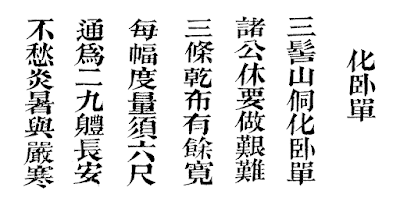 化卧單
三髻山侗化卧單
諸公休要做艱難
三條乾布有餘寛
每幅度量須六尺
通爲二九軆長安
不愁炎暑與嚴寒